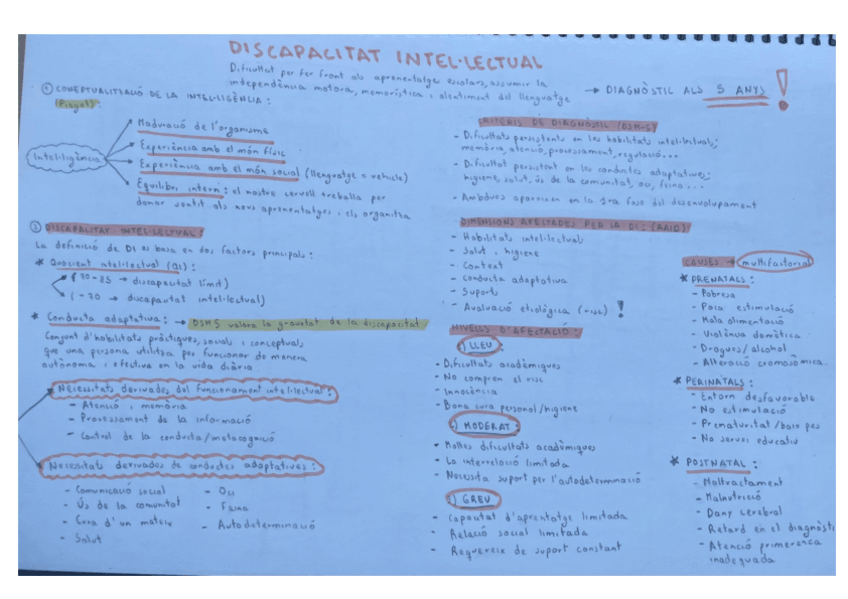 DISCAPACITAT INTEL·LECTUAL
Dificultat per fer front als aprenentatges escolars, assumir la
independència motora, memorística i alentiment del llenguatge
→ DIAGNÒSTIC ALS 5 ANYS !
① CONCEPTUALITZACIÓ DE LA INTEL·LIGÈNCIA:
(Piaget):
Intel·ligència
Maduració de l'organisme
Experiència amb el món físic
Experiència amb el món social (llenguatge = vehicle)
Equilibri intern: el nostre cervell treballa per
donar sentit als nous aprenentatges i els organitza
② DISCAPACITAT INTEL·LECTUAL:
La definició de DI es basa en dos factors principals:
* Quocient intel·lectual (QI):
→ discapacitat límit)
(-70 → discapacitat intel·lectual)
* Conducta adaptativa: → DSM5 valora la gravetat de la discapacitat
Conjunt d'habilitats pràctiques, socials i conceptuals
que una persona utilitza per funcionar de manera
autònoma i efectiva en la vida diària
Necessitats derivades del funcionament intel·lectual:
- Atenció i memòria
- Processament de la informació
- Control de la conducta/metacognició
Necessitats derivades de conductes adaptatives:
- Comunicació social
- Ús de la comunitat
- Cura d'un mateix
- Salut
- Oci
- Feina
- Autodeterminació
CRITERIS DE DIAGNÒSTIC (DSM-5)
- Dificultats persistents en les habilitats intel·lectuals;
memòria, atenció, processament, regulació...
- Dificultat persistent en les conductes adaptatives;
higiene, salut, ús de la comunitat, oci, feina...
- Ambdues apareixen en la 1ra fase del desenvolupament
DIMENSIONS AFECTADES PER LA DI: (AAID)
- Habilitats intel·lectual
- Salut i higiene
- Context
- Conducta adaptativa
- Suports
- Avaluació etiològica !
NIVELLS D'AFECTACIÓ:
LLEU
- Dificultats acadèmiques
- No compren el risc
- Innocència
- Bona cura personal/higiene
MODERAT:
- Moltes dificultats acadèmiques
- La interrelació limitada
- Necessita suport per l'autodeterminació
GREU
- Capacitat d'aprentatge limitada
- Relació social limitada
- Requereix de suport constant
CAUSES → multifactorial
* PRENATALS:
- Pobresa
- Poca estimulació
- Mala alimentació
- Violència domèstica
- Drogues/alcohol
- Alteració cromosòmica
* PERINATALS:
- Entorn desfavorable
- No estimulació
- Prematuritat/baix pes
- No servei educatiu
* POSTNATAL:
- Maltractament
- Malnutrició
- Dany cerebral
- Retard en el diagnòsti
- Atenció primerenca
inadequada